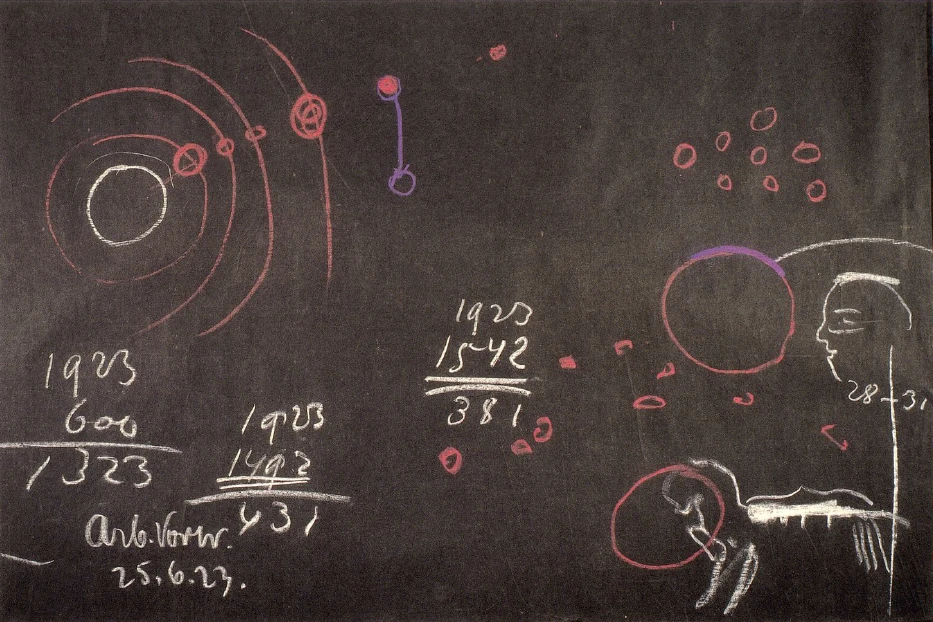 1923
600
1323
1923
1492
431
Arb. Vortr.
25.6.23.
1923
1542
381
28-31